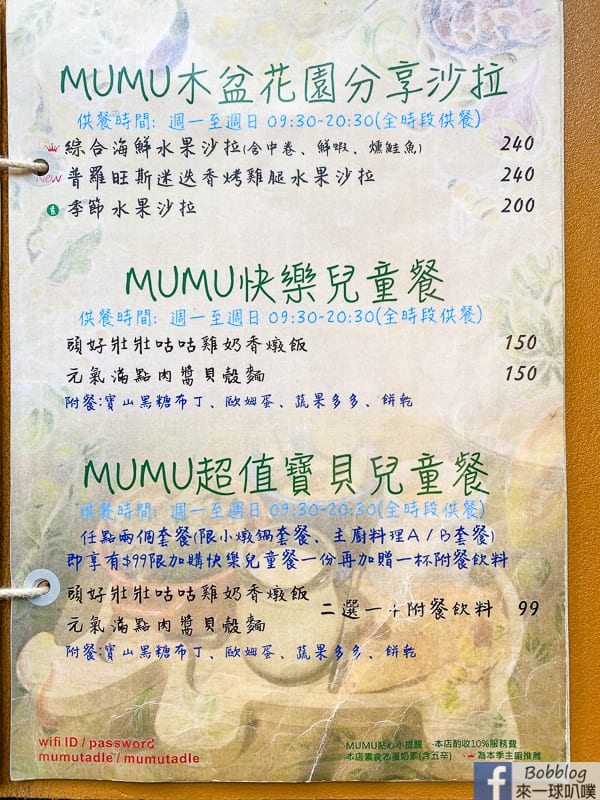 MUMU木盆花園分享沙拉
供餐時間: 週一至週日 09:30-20:30(全時段供餐)
綜合海鮮水果沙拉(含中卷、鮮蝦、燻鮭魚) 240
NEW 普羅旺斯迷迭香烤雞腿水果沙拉 240
季節水果沙拉 200
MUMU快樂兒童餐
供餐時間: 週一至週日 09:30-20:30(全時段供餐)
頭好壯壯咕咕雞奶香燉飯 150
元氣滿點肉醬貝殼麵 150
附餐:寶山黑糖布丁、歐姆蛋、蔬果多多、餅乾
MUMU超值寶貝兒童餐
供餐時間: 週一至週日 09:30-20:30(全時段供餐)
任點兩個套餐(限小燉鍋套餐、主廚料理A/B套餐)
即享有$99限加購快樂兒童餐一份再加贈一杯附餐飲料
頭好壯壯咕咕雞奶香燉飯
二選一+附餐飲料 99
元氣滿點肉醬貝殼麵
附餐:寶山黑糖布丁、歐姆蛋、蔬果多多、餅乾
wifi ID / password
mumutadle / mumutadle
MUMU貼心小提醒 ·本店酌收10%服務費
本店素食為蛋奶素(含五辛) ·為本季主廚推薦
Bobblog
來一球叭噗